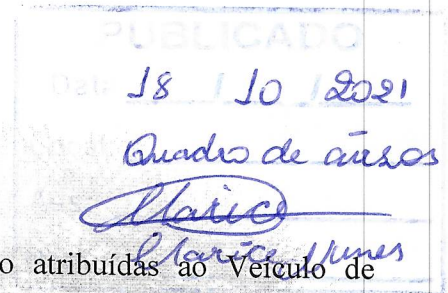 PUBLICADO
Data 18 / 10 / 2021
Quadro de avisos
Clarice
Clarice Nunes
o atribuídas ao Veículo de